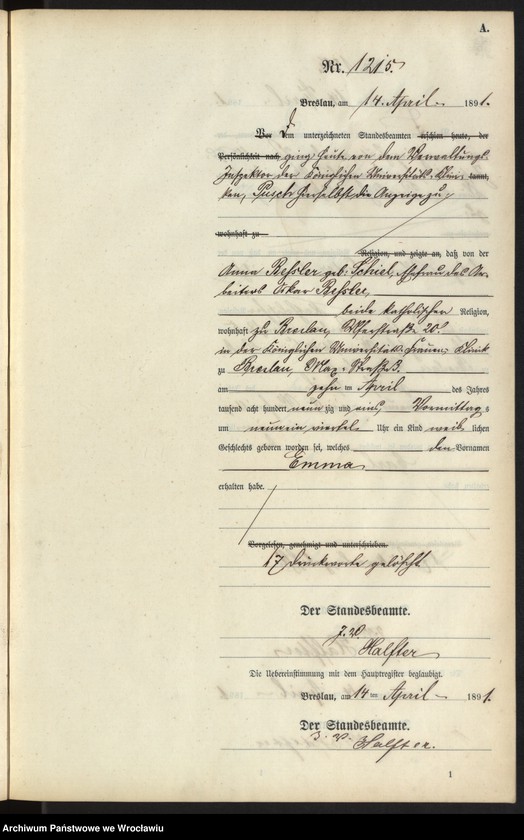 A.
Nr. 1215.
Breslau, am 14. April 1891.
Vor Dem unterzeichneten Standesbeamten erschien heute, der
Persönlichkeit nach ging heute von dem Verwaltungs-
Inspektor der Königlichen Universitäts-Klini- kannt,
ken, Pusch hierselbst die Anzeige zu,
wohnhaft zu
Religion, und zeigte an, daß von der
Anna Reßler geb. Schiel, Ehefrau des Ar-
beiters Oskar Reßler,
beide katholischer Religion,
wohnhaft zu Breslau, 20
in der Königlichen Universitäts-Frauen-Klinik
zu Breslau, Max-Straße 3.
am zehn ten April des Jahres
tausend acht hundert neunzig und eins, Vormittags
um neunein viertel Uhr ein Kind weiblichen
Geschlechts geboren worden sei, welches den Vornamen
Emma
erhalten habe.
Vorgelesen, genehmigt und unterschrieben.
17 Druckworte gelöscht
Der Standesbeamte.
J. V.
Halfter
Die Uebereinstimmung mit dem Hauptregister beglaubigt.
Breslau, am 14 ten April 1891.
Der Standesbeamte.
J. V. Halfter.
1
Archiwum Państwowe we Wrocławiu